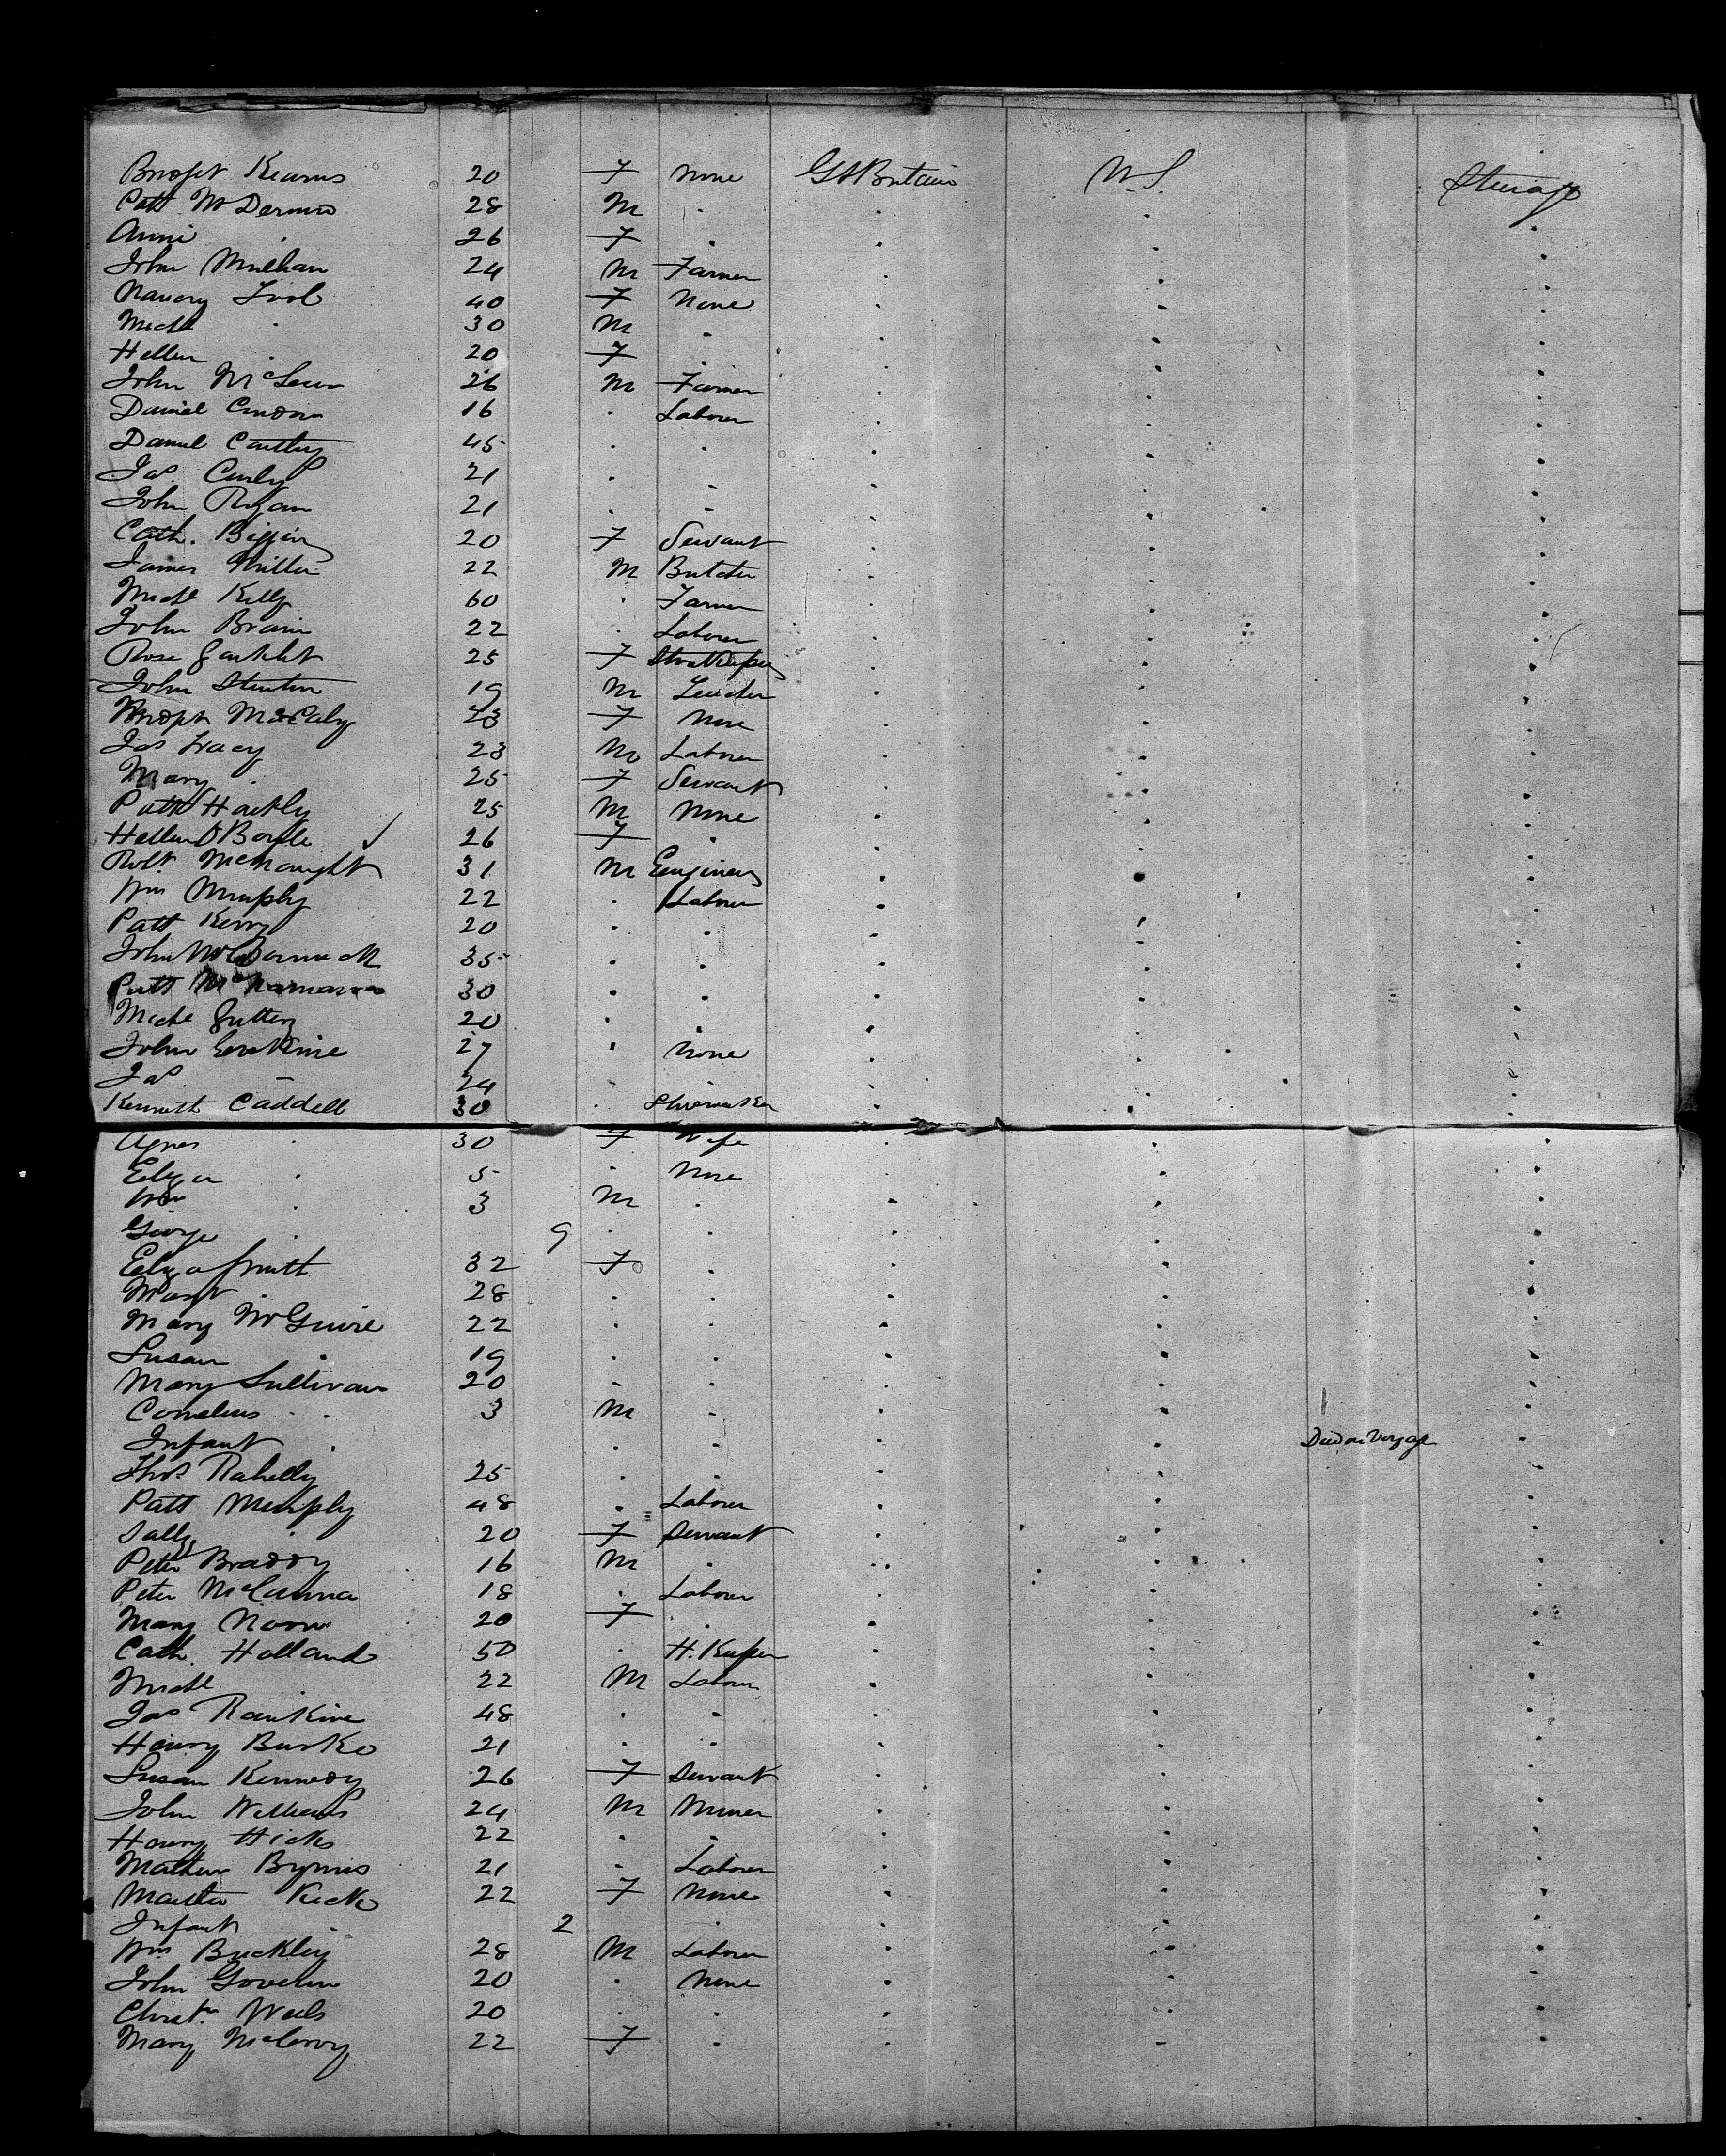 Kearns 20 F None Gt Britain U.S. Steerage
Patt McDermo 28 M
Annie 26 F
John 24 M Farmer
40 F None
Michl 30 M
Hellen 20 F
John 26 M Farmer
Daniel 16 Laborer
Daniel 45
Jas Curly 21
John Ryan 21
Cath. 20 F Servant
James Miller 22 M Butcher
Michl Kelly 60 Farmer
John 22 Laborer
Rose 25 F
John 19 M
23 F None
Jas Tracy 23 M Laborer
Mary 25 F Servant
Patt 25 M None
Hellen O Boyle ✓ 26 F
Robt McNaught 31 M Engineer
Wm Murphy 22 Laborer
Patt Kerry 20
John McCormack 35
Patt McNamara 30
Michl 20
John Erskine 27 None
Jas 24
Kenneth Caddell 30 Shoemaker
Agnes 30 F Wife
Eliza 5 None
Wm 3 M
George 9
Eliza Smith 32 F
Margt 28
Mary McGuire 22
Susan 19
Mary Sullivan 20
Cornelius 3 M
Infant Died on Voyage
Thos 25
Patt Murphy 48 Laborer
Sally 20 F Servant
Peter Braddy 16 M
Peter McCanna 18 Laborer
Mary Noon 20 F
Cath. Holland 50 H. Keeper
Michl 22 M Laborer
Jas Rankine 48
Henry Burke 21
Susan Kennedy 26 F Servant
John Williams 24 M Miner
Henry Hicks 22
Mathew Byrnes 21 Laborer
Keck 22 F None
Infant 2
Wm Buckley 28 M Laborer
John 20 None
Christr 20
Mary McElroy 22 F